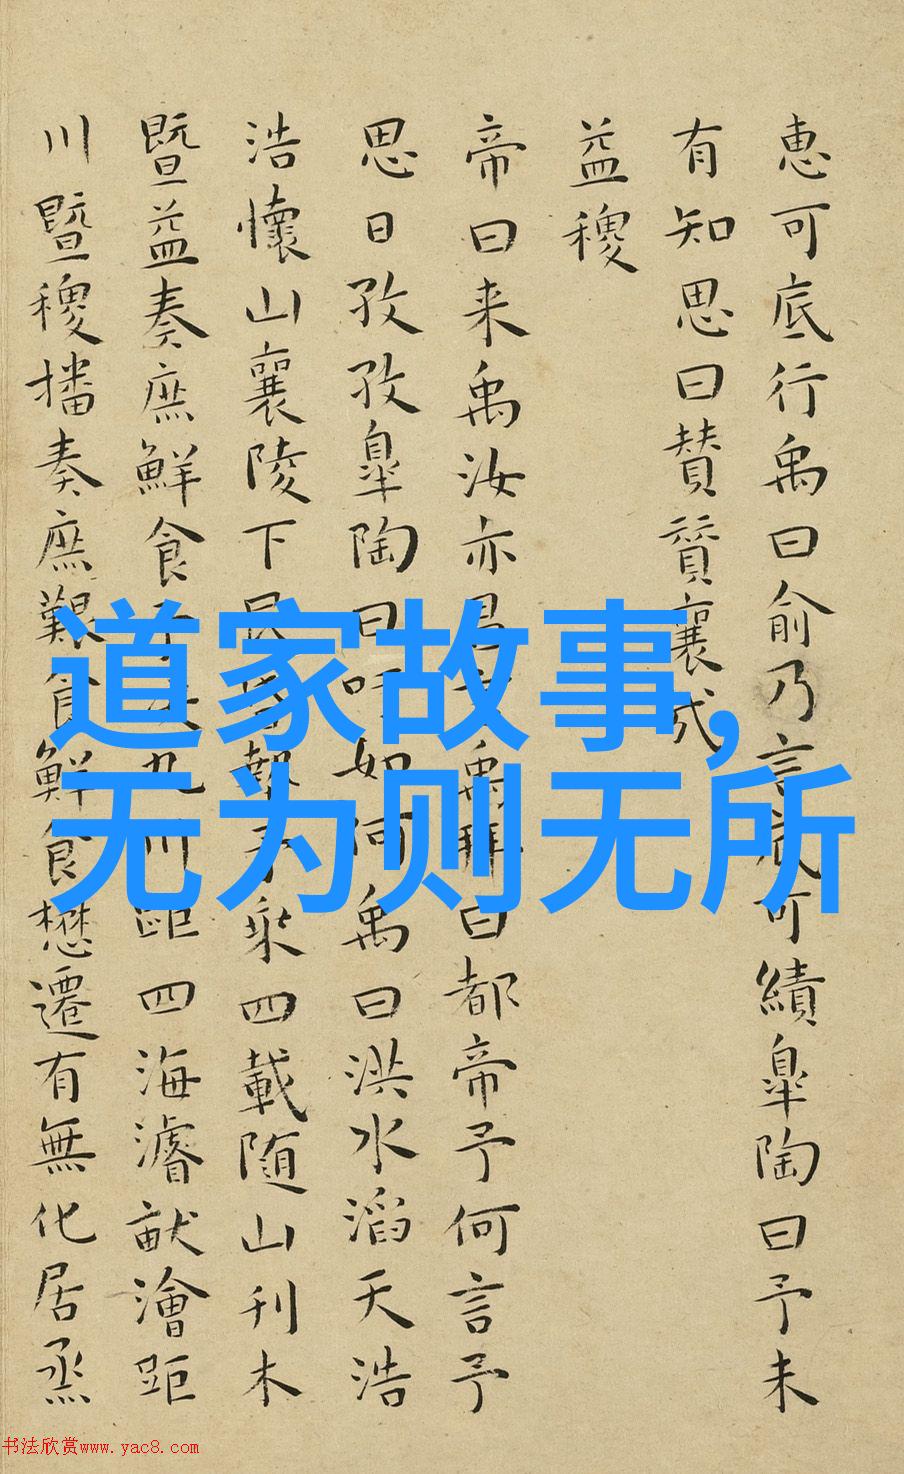 道家故事,
无为则无所
惠可底行禹曰俞乃言底可績皐陶曰予未
有知思曰贊贊襄哉
益稷
帝曰来禹汝亦昌言禹拜曰都帝予何言予
思日孜孜皐陶曰吁如何禹曰洪水滔天浩
浩懷山襄陵下民昏墊予乗四載随山刊木
暨益奏庶鮮食予决九川距四海濬畎澮距
川暨稷播奏庶艱食鮮食懋遷有無化居烝
书法欣赏www.yac8.com